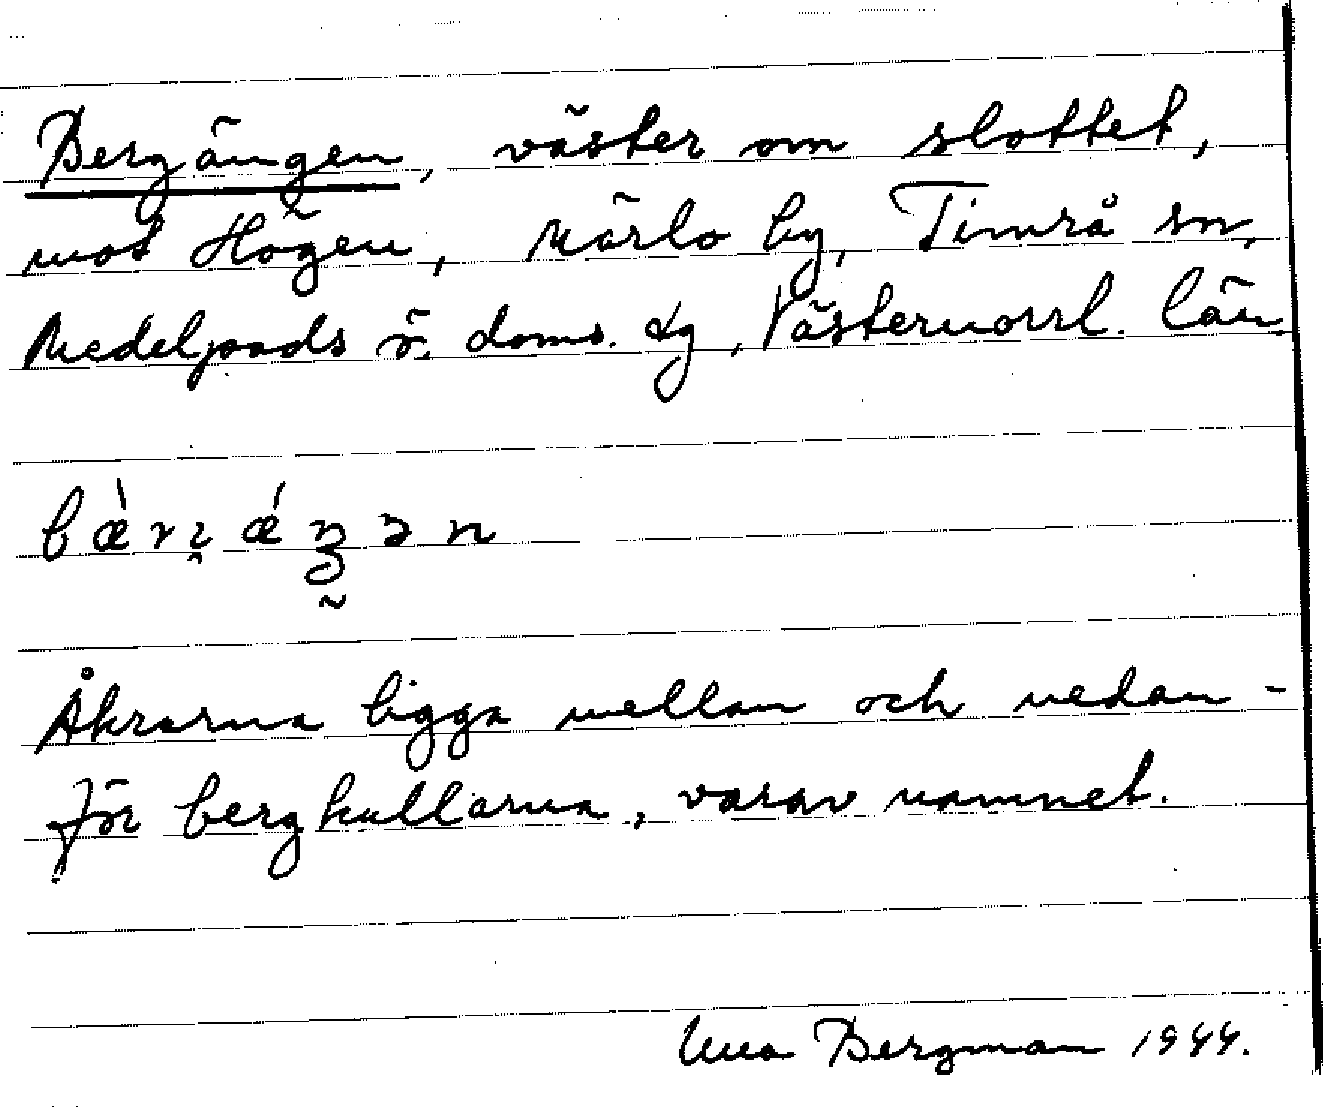 Bergängen, väster om slottet,
mot Högen, Märlo by, Timrå sn,
Medelpads ö. doms. dg, Västernorrl. län
Åkrarna ligga mellan och nedan-
för bergkullarna, varav namnet.
Bergman 1944.